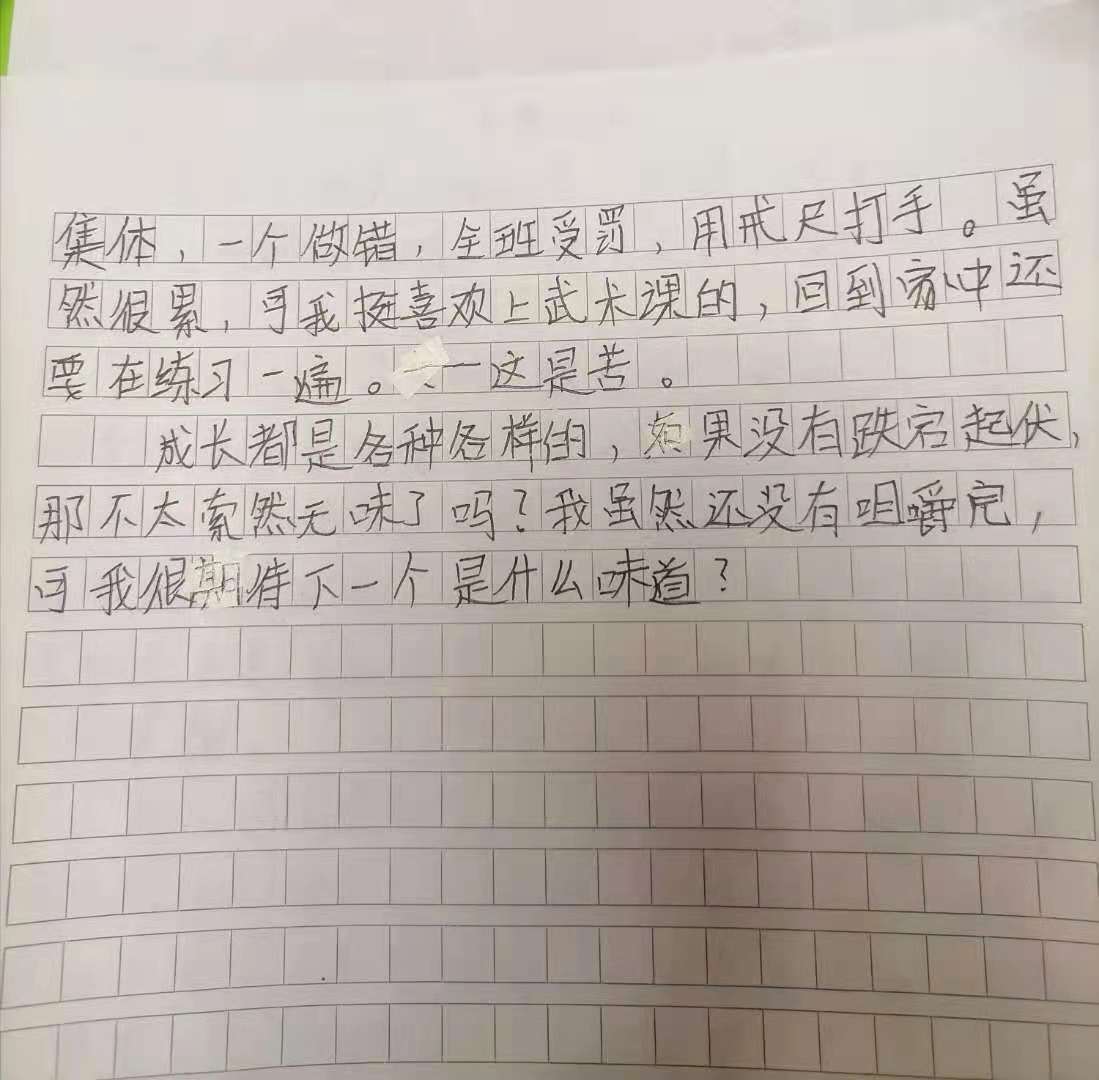 集体，一个做错，全班受罚，用戒尺打手。虽
然很累，可我挺喜欢上武术课的，回到家中还
要在练习一遍。一这是苦。
成长都是各种各样的，如果没有跌宕起伏，
那不太索然无味了吗？我虽然还没有咀嚼完，
可我很期待下一个是什么味道？